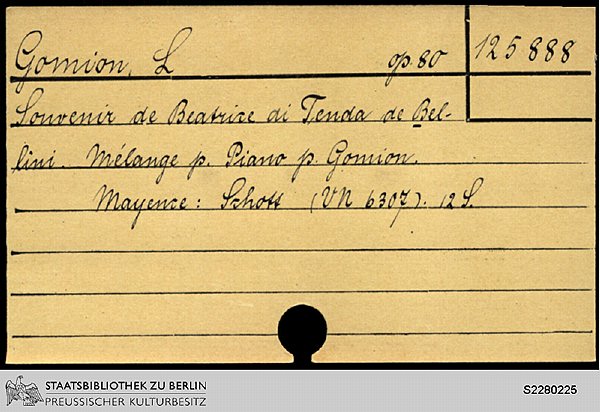 Gomion, L op. 80 125888
Souvenir de Beatrice di Tenda de Bel-
lini. Mélange p. Piano p. Gomion.
Mayence: Schott (VN 6307). 12 S.
STAATSBIBLIOTHEK ZU BERLIN
PREUSSISCHER KULTURBESITZ
S2280225